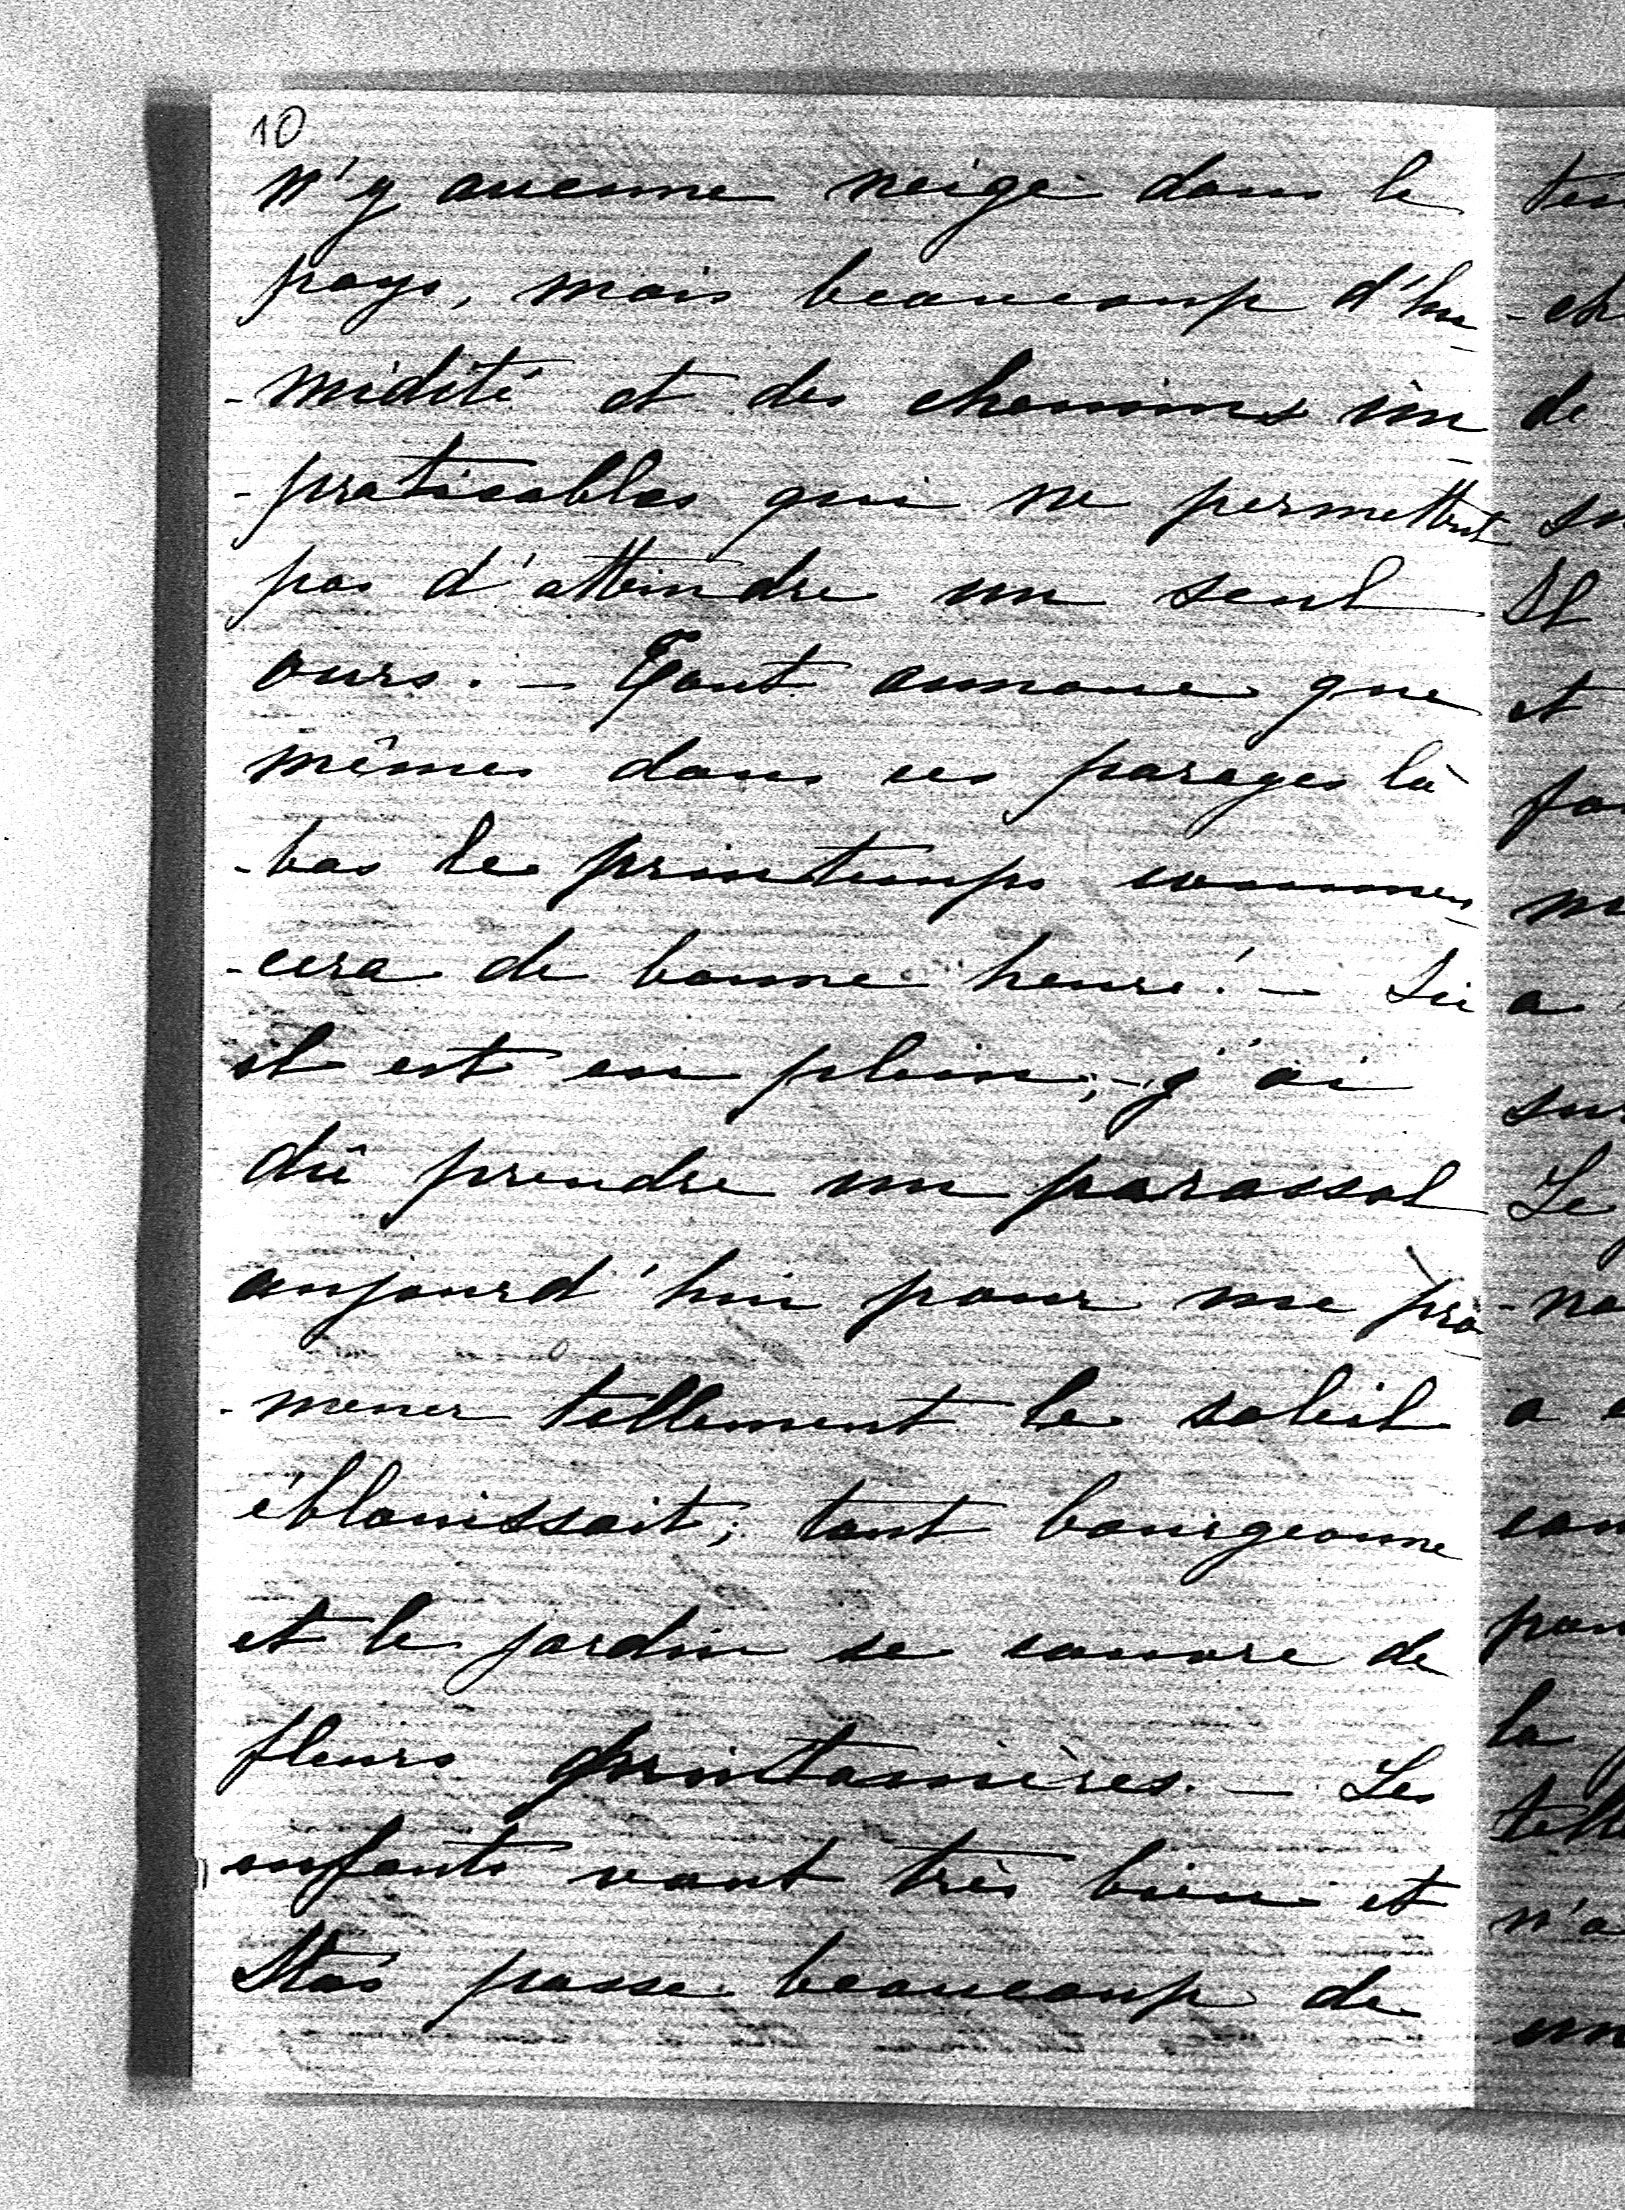 10
n'y aucune neige dans le
pays, mais beaucoup d'hu-
-midité et des chemins im-
-praticables qui ne permettent
pas d'atteindre un seul
ours. – Tout annonce que
mêmes dans ces parages là-
-bas le printemps commen-
-cera de bonne heure! – Ici
il est en plein; – j'ai
dû prendre un parassol
aujourd'hui pour me pro-
-mener tellement le soleil
éblouissait; tout bourgeonne
et le jardin se couvre de
fleurs printanières. – Les
enfants vont très bien et
Staś passe beaucoup de